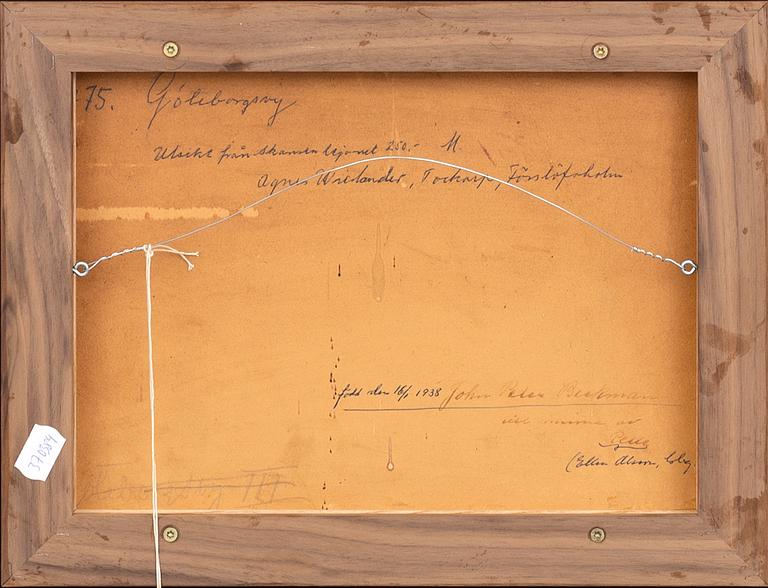 75. Göteborgsvy
Utsikt från Skansen Lejonet 250.- M.
Agnes Wieslander, Tockarp, Förslöfsholm
född den 16/1 1938 John Peter Beckman
till minne av
(Ellen Olson, Gbg.
III
370384